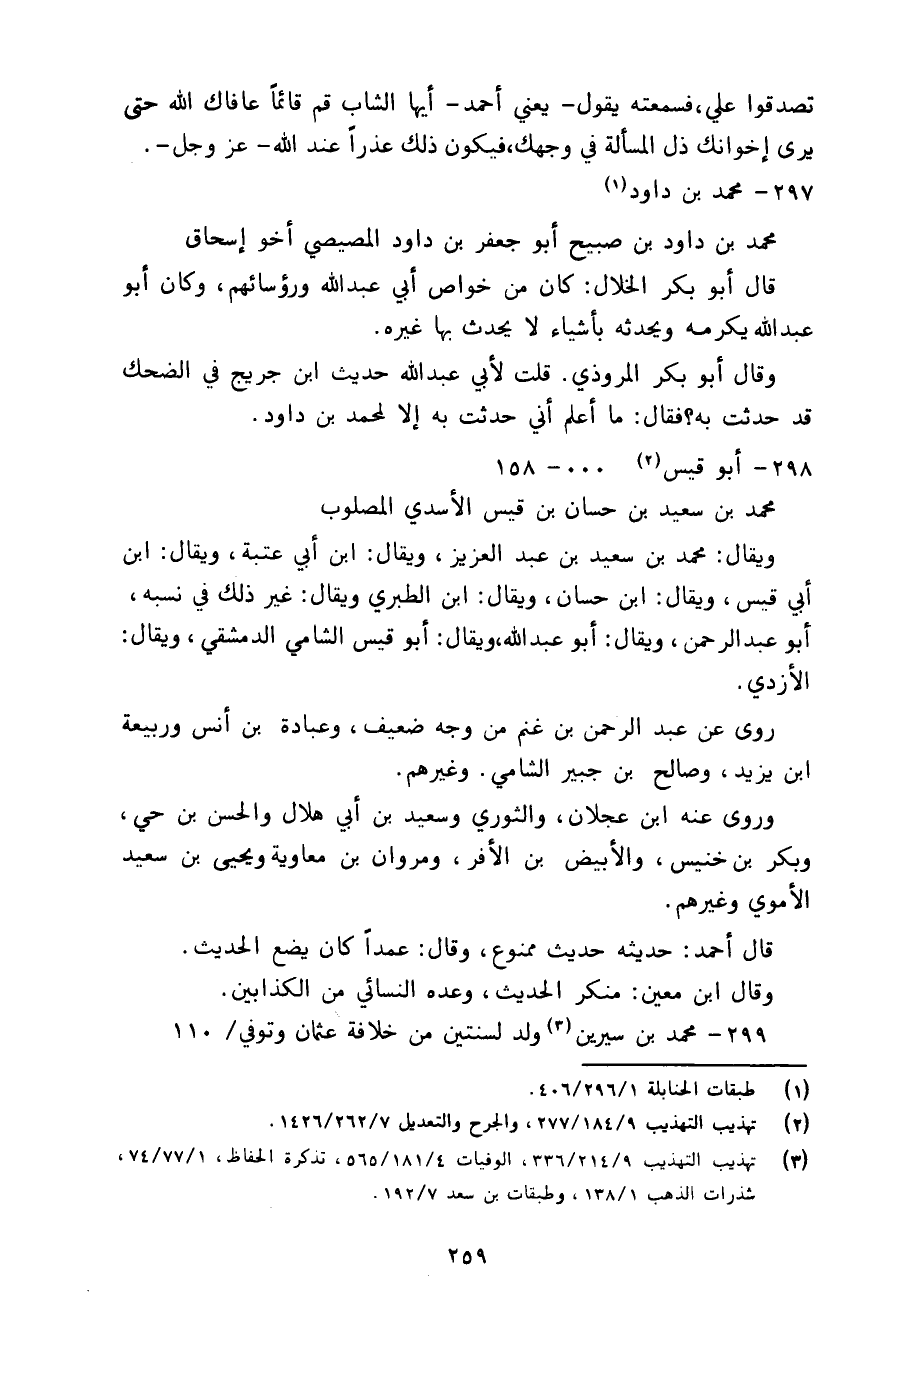 تصدقوا علي،فسمعته يقول- يعني أحمد- أيها الشاب قم قائماً عافاك الله حتى
يرى إخوانك ذل المسألة في وجهك،فيكون ذلك عذراً عند الله- عز وجل-.
٢٩٧- محمد بن داود(١)
محمد بن داود بن صبيح أبو جعفر بن داود المصيصي أخو إسحاق
قال أبو بكر الخلال: كان من خواص أبي عبدالله ورؤسائهم، وكان أبو
عبدالله يكرمه ويحدثه بأشياء لا يحدث بها غيره.
وقال أبو بكر المروذي. قلت لأبي عبدالله حديث ابن جريج في الضحك
قد حدثت به؟فقال: ما أعلم أني حدثت به إلا لمحمد بن داود.
٢٩٨- أبو قيس(٢) ٠٠٠- ١٥٨
محمد بن سعيد بن حسان بن قيس الأسدي المصلوب
ويقال: محمد بن سعيد بن عبد العزيز، ويقال: ابن أبي عتبة، ويقال: ابن
أبي قيس، ويقال: ابن حسان، ويقال: ابن الطبري ويقال: غير ذلك في نسبه،
أبو عبدالرحمن، ويقال: أبو عبدالله،ويقال: أبو قيس الشامي الدمشقي، ويقال:
الأزدي.
روى عن عبد الرحمن بن غنم من وجه ضعيف، وعبادة بن أنس وربيعة
ابن يزيد، وصالح بن جبير الشامي. وغيرهم.
وروى عنه ابن عجلان، والثوري وسعيد بن أبي هلال والحسن بن حي،
وبكر بن خنيس، والأبيض بن الأفر، ومروان بن معاوية ويحيى بن سعيد
الأموي وغيرهم.
قال أحمد: حديثه حديث ممنوع، وقال: عمداً كان يضع الحديث.
وقال ابن معين: منكر الحديث، وعده النسائي من الكذابين.
٢٩٩- محمد بن سيرين(٣) ولد لسنتين من خلافة عثمان وتوفي/ ١١٠
(١) طبقات الحنابلة ٤٠٦/٢٩٦/١.
(٢) تهذيب التهذيب ٢٧٧/١٨٤/٩، والجرح والتعديل ١٤٢٦/٢٦٢/٧.
(٣) تهذيب التهذيب ٣٣٦/٢١٤/٩، الوفيات ٥٦٥/١٨١/٤، تذكرة الحفاظ، ٧٤/٧٧/١،
شذرات الذهب ١٣٨/١، وطبقات بن سعد ١٩٢/٧.
٢٥٩